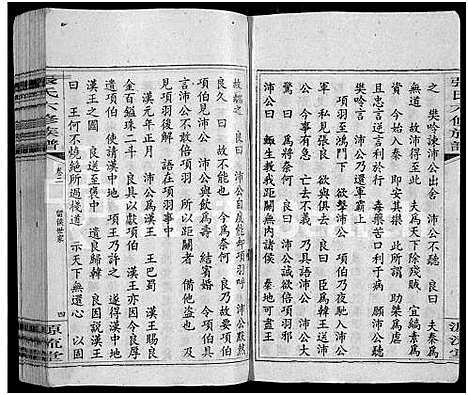 之 樊噲諫沛公出舍 沛公不聽 良曰 夫秦爲
無道 故沛公得至此 夫爲天下除殘賊 宜縞素爲
資 今始入秦 即安其樂 此所謂 助桀爲虐
且忠言逆耳利于行 毒藥苦口利于病 願沛公聽
樊噲言 沛公乃還軍霸上
項羽至鴻門下 欲擊沛公 項伯乃夜馳入沛公
軍 私見張良 欲與俱去 良曰 臣爲韓王送沛公
今事有急 亡去不義 乃具語沛公 沛公大
驚 曰 爲將奈何 良曰 沛公誠欲倍項羽邪
沛公曰 鯫生教我距關無內諸侯 秦地可盡王
故聽之 良曰 沛公自度能却項羽乎 沛公默然
良久 曰 故不能也 今爲奈何 良乃故要項伯
項伯見沛公 沛公與飲爲壽 結賓婚 令項伯
具言沛公不敢倍項羽 所以距關者 備他盜也 及
見項羽後解 語在項羽事中
漢元年正月 沛公爲漢王 王巴蜀 漢王賜良
金百鎰珠二斗 良具以獻項伯 漢王亦因令良厚
遺項伯 使請漢中地 項王乃許之 遂得漢中地
漢王之國 良送至褒中 遣良歸韓 良因說漢王
曰 王何不燒絕所過棧道 示天下無還心 以固
張氏六修族譜
卷二
留侯世家
四
原流堂